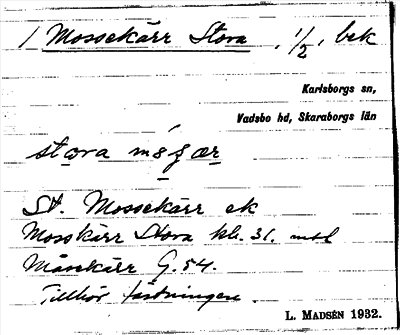 1 Mossekärr Stora, 1/2, bek
Karlsborgs sn,
Vadsbo hd, Skaraborgs län
stora
St. Mossekärr ek
Mosskärr Stora kb. 31. mtl
Måsekärr G. 54.
Tillhör fästningen.
L. MADSÉN 1932.